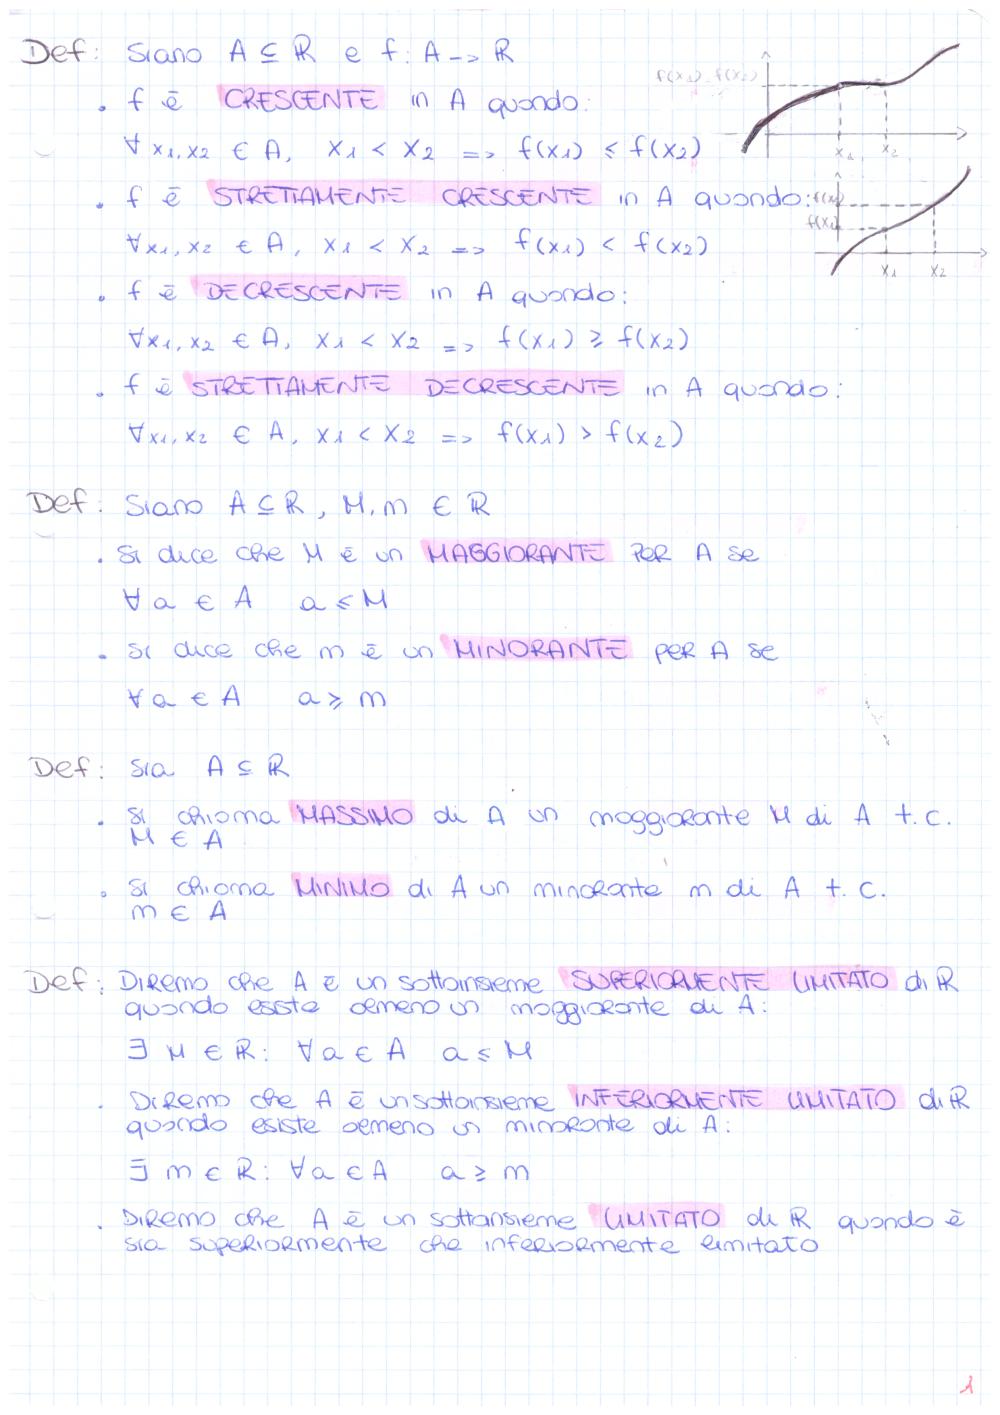 Def: Siano A ⊆ ℝ e f: A -> ℝ
f(x₁)=f(x₂)
• f è CRESCENTE in A quando:
∀ x₁, x₂ ∈ A, x₁ < x₂ => f(x₁) ≤ f(x₂)
x₁ x₂
• f è STRETTAMENTE CRESCENTE in A quando:
f(x₂)
f(x₁)
∀ x₁, x₂ ∈ A, x₁ < x₂ => f(x₁) < f(x₂)
x₁ x₂
• f è DECRESCENTE in A quando:
∀ x₁, x₂ ∈ A, x₁ < x₂ => f(x₁) ≥ f(x₂)
• f è STRETTAMENTE DECRESCENTE in A quando:
∀ x₁, x₂ ∈ A, x₁ < x₂ => f(x₁) > f(x₂)
Def: Siano A ⊆ ℝ, M, m ∈ ℝ
• Si dice che M è un MAGGIORANTE PER A se
∀ a ∈ A a ≤ M
• Si dice che m è un MINORANTE PER A se
∀ a ∈ A a ≥ m
Def: Sia A ⊆ ℝ
• Si chiama MASSIMO di A un maggiorante M di A t.c.
M ∈ A
• Si chiama MINIMO di A un minorante m di A t.c.
m ∈ A
Def: Diremo che A è un sottoinsieme SUPERIORMENTE LIMITATO di ℝ
quando esiste almeno un maggiorante di A:
∃ M ∈ ℝ: ∀ a ∈ A a ≤ M
• Diremo che A è un sottoinsieme INFERIORMENTE LIMITATO di ℝ
quando esiste almeno un minorante di A:
∃ m ∈ ℝ: ∀ a ∈ A a ≥ m
• Diremo che A è un sottansieme LIMITATO di ℝ quando è
sia superiormente che inferiormente limitato
1